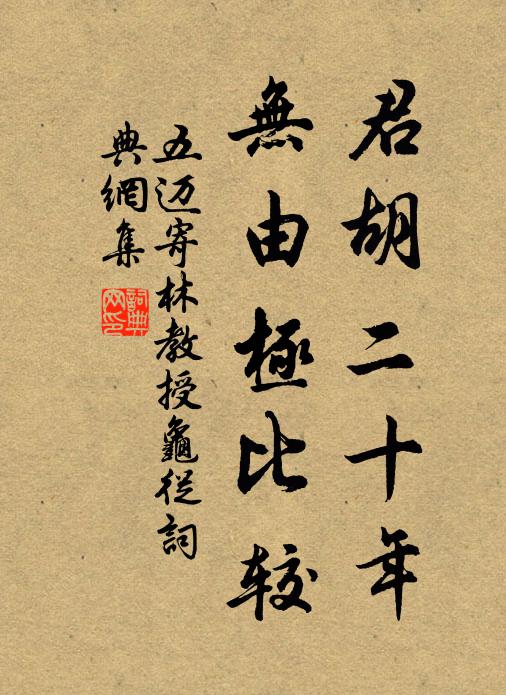 君胡二十年
無由極比较
五迈寄林教授龜從詞
典網集
詞典
网印